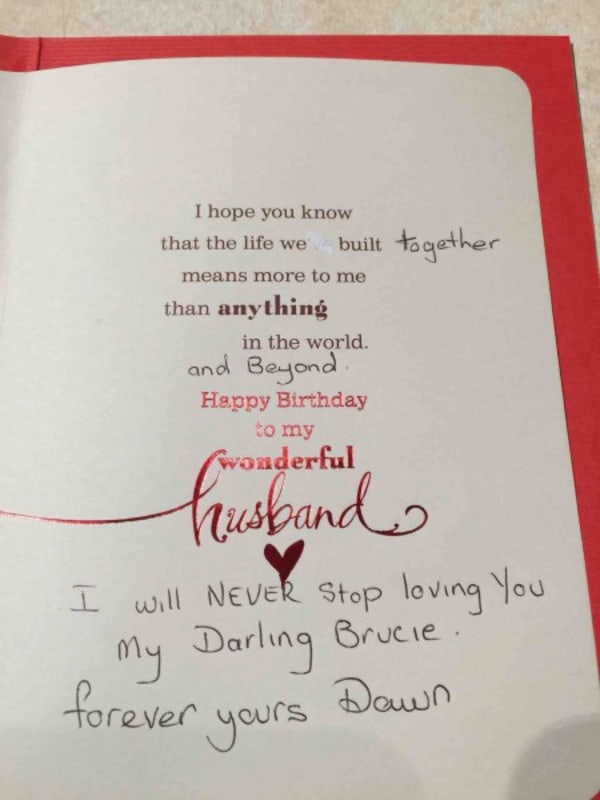 I hope you know
that the life we' built together
means more to me
than anything
in the world.
and Beyond.
Happy Birthday
to my
wonderful
husband
I will NEVER Stop loving You
My Darling Brucie.
forever yours Dawn